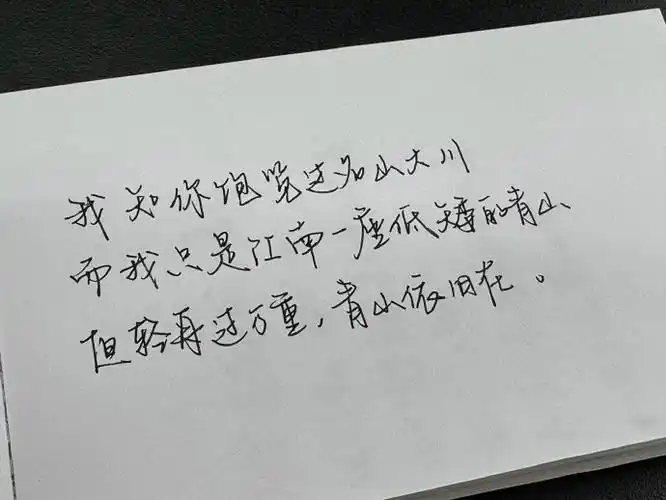 我知你饱览过名山大川
而我只是江南一座低矮的青山
但轻舟过万重，青山依旧在。